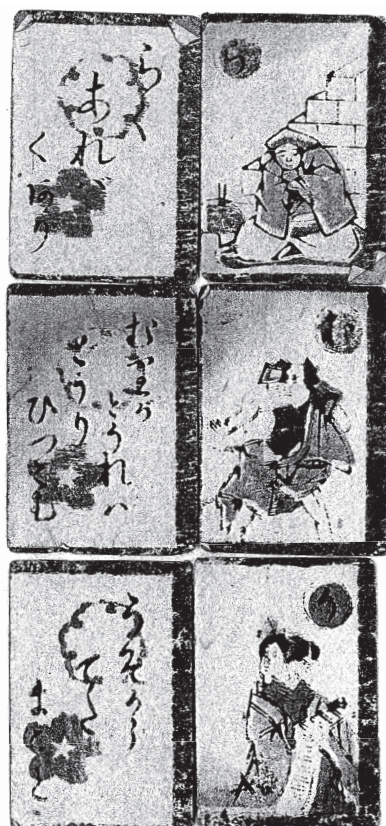 ら
らく
あれバ
くあり
む
むりが
とうれハ
どうり
ひつこむ
う
うそから
でた
まこと